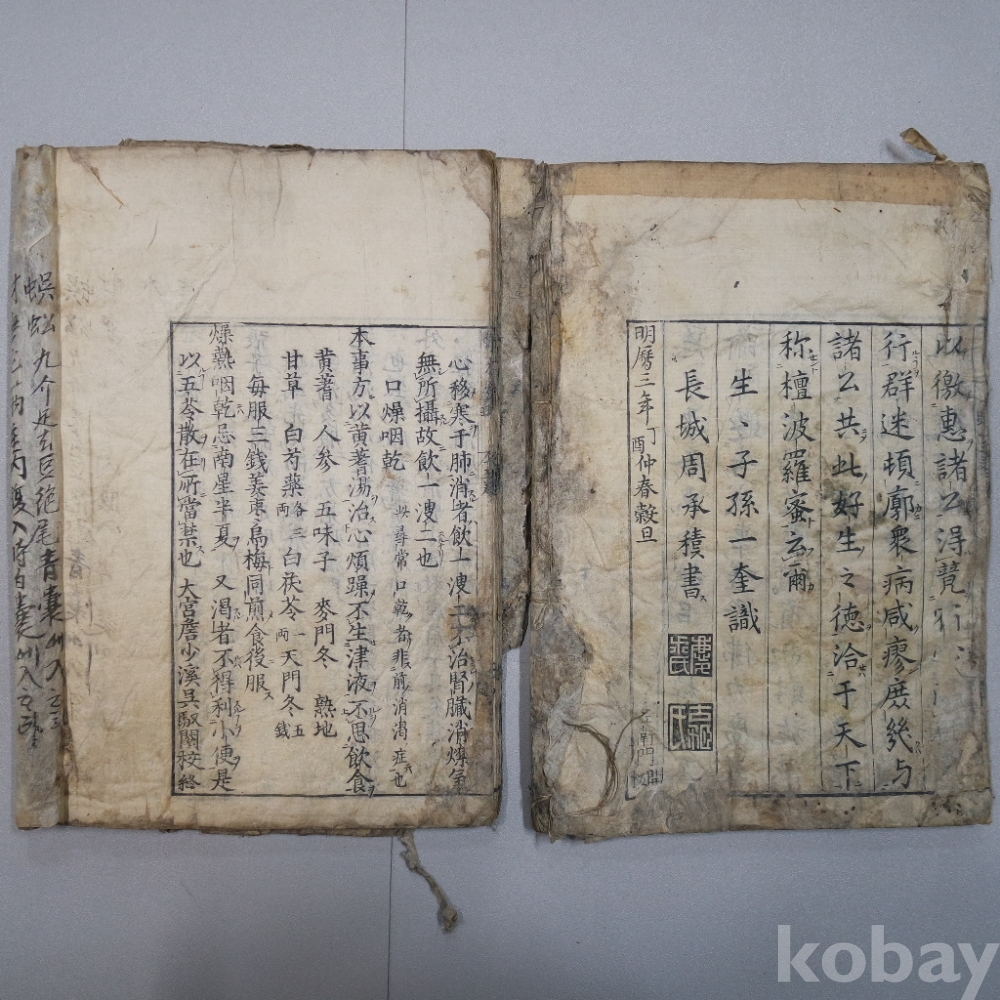 以徼惠諸公得覽
行群迷頓廓衆病咸瘳庶幾与
諸公共此好生之德洽于天下
称檀波羅蜜云爾
生生子孫一奎識
長城周承積書
明曆三年丁酉仲春穀旦
心移寒于肺消者飲一溲二不治腎臓消燥氣
無所攝故飲一溲二也
口燥咽乾 此尋常口乾者非前消渇症也
本事方以黄蓍湯治心煩躁不生津液不思飲食
黄蓍 人参 五味子 麥門冬 熟地
甘草 白芍藥各三両 白茯苓一両 天門冬五銭
毎服三錢姜棗烏梅同煎食後服
燥熱咽乾忌南星半夏 又渇者不得利小便是
以五苓散在所當禁也 大宮詹少溪具
蜈蚣九介足玄巨絶尾青嚢
kobay